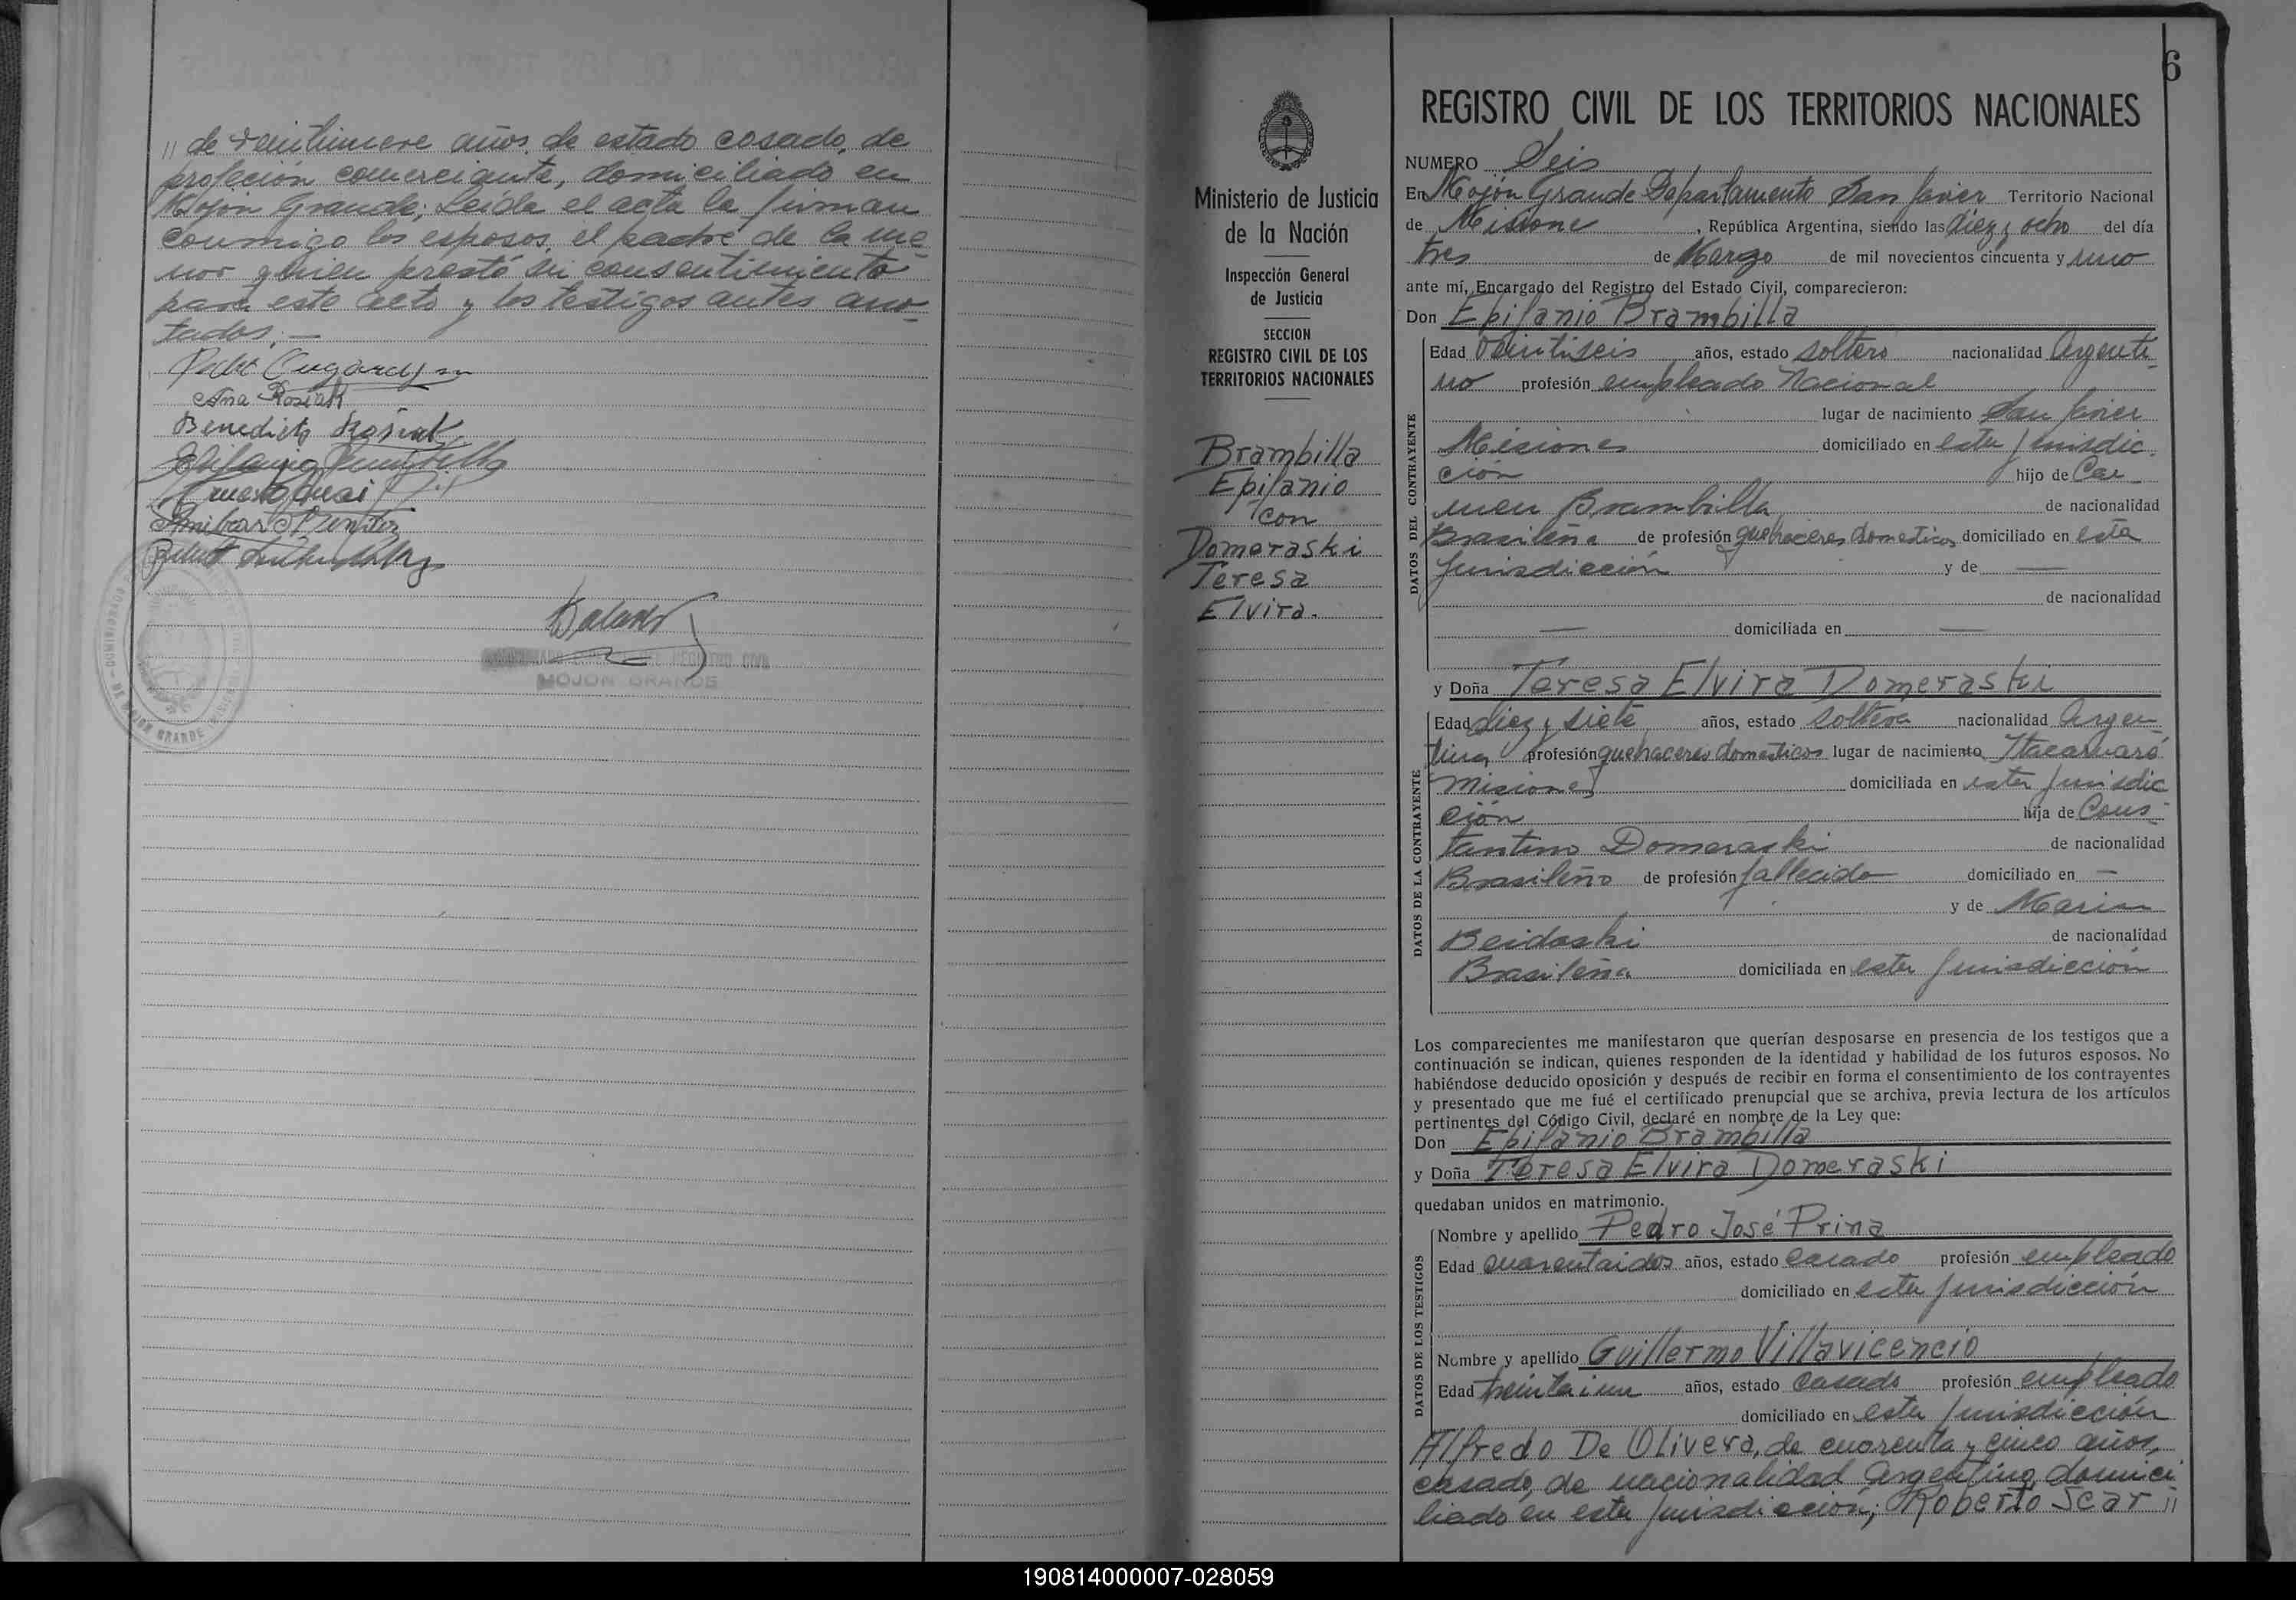 " de veintinueve años, de estado casado, de
profeción comerciante, domiciliado en
Mojón Grande; Leída el acta la firman
conmigo los esposos, el padre de la me
nor quien prestó su consentimiento
para este acto y los testigos antes ano-
tados. —
Ana Rosiak
Benedicto Rosiak
MOJON GRANDE
Ministerio de Justicia
de la Nación
Inspección General
de Justicia
SECCION
REGISTRO CIVIL DE LOS
TERRITORIOS NACIONALES
Brambilla
Epifanio
con
Domeraski
Teresa
Elvira.
6
REGISTRO CIVIL DE LOS TERRITORIOS NACIONALES
NUMERO Seis
En Mojón Grande Departamento San Javier Territorio Nacional
de Misione, República Argentina, siendo las diez y ocho del día
tres de Marzo de mil novecientos cincuenta y uno
ante mí, Encargado del Registro del Estado Civil, comparecieron:
Don Epifanio Brambilla
DATOS DEL CONTRAYENTE
Edad veintiseis años, estado soltero nacionalidad Argenti-
no profesión empleado Nacional
lugar de nacimiento San Javier
Misiones domiciliado en esta jurisdic-
ción hijo de Car-
men Brambilla de nacionalidad
Brasileña de profesión quehaceres domesticos domiciliado en esta
jurisdicción y de —
de nacionalidad
— domiciliada en —
y Doña Teresa Elvira Domeraski
DATOS DE LA CONTRAYENTE
Edad diez y siete años, estado soltera nacionalidad Argen-
tina profesión quehaceres domesticos lugar de nacimiento Itacaruaré
Misiones domiciliada en esta jurisdic
ción hija de Cons-
tantino Domeraski de nacionalidad
Brasileño de profesión fallecido domiciliado en —
y de Maria
Beidaski de nacionalidad
Brasileña domiciliada en esta jurisdicción
Los comparecientes me manifestaron que querían desposarse en presencia de los testigos que a
continuación se indican, quienes responden de la identidad y habilidad de los futuros esposos. No
habiéndose deducido oposición y después de recibir en forma el consentimiento de los contrayentes
y presentado que me fué el certificado prenupcial que se archiva, previa lectura de los artículos
pertinentes del Código Civil, declaré en nombre de la Ley que:
Don Epifanio Brambilla
y Doña Teresa Elvira Domeraski
quedaban unidos en matrimonio.
DATOS DE LOS TESTIGOS
Nombre y apellido Pedro José Prina
Edad cuarentaidos años, estado casado profesión empleado
domiciliado en esta jurisdicción
Nombre y apellido Guillermo Villavicencio
Edad treintaiun años, estado casado profesión empleado
domiciliado en esta jurisdicción
Alfredo De Olivera, de cuarenta y cinco años,
casado, de nacionalidad Argentina, domici
liado en esta jurisdicción; Roberto Scar "
190814000007-028059